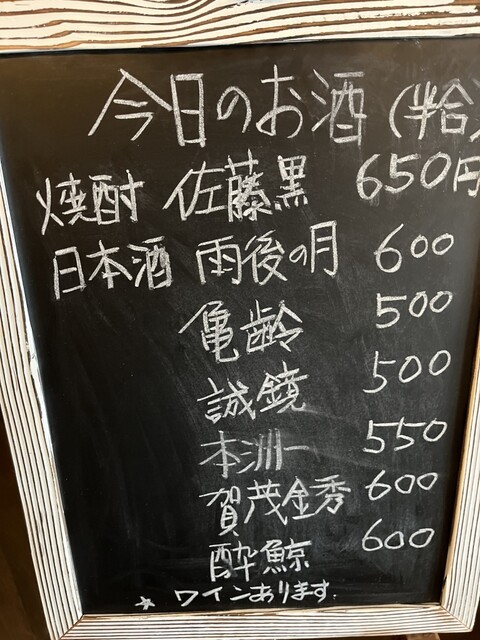 今日のお酒(半合)
焼酎 佐藤黒 650円
日本酒 雨後の月 600
亀齢 500
誠鏡 500
本洲一 550
賀茂金秀 600
酔鯨 600
☆ ワインあります.